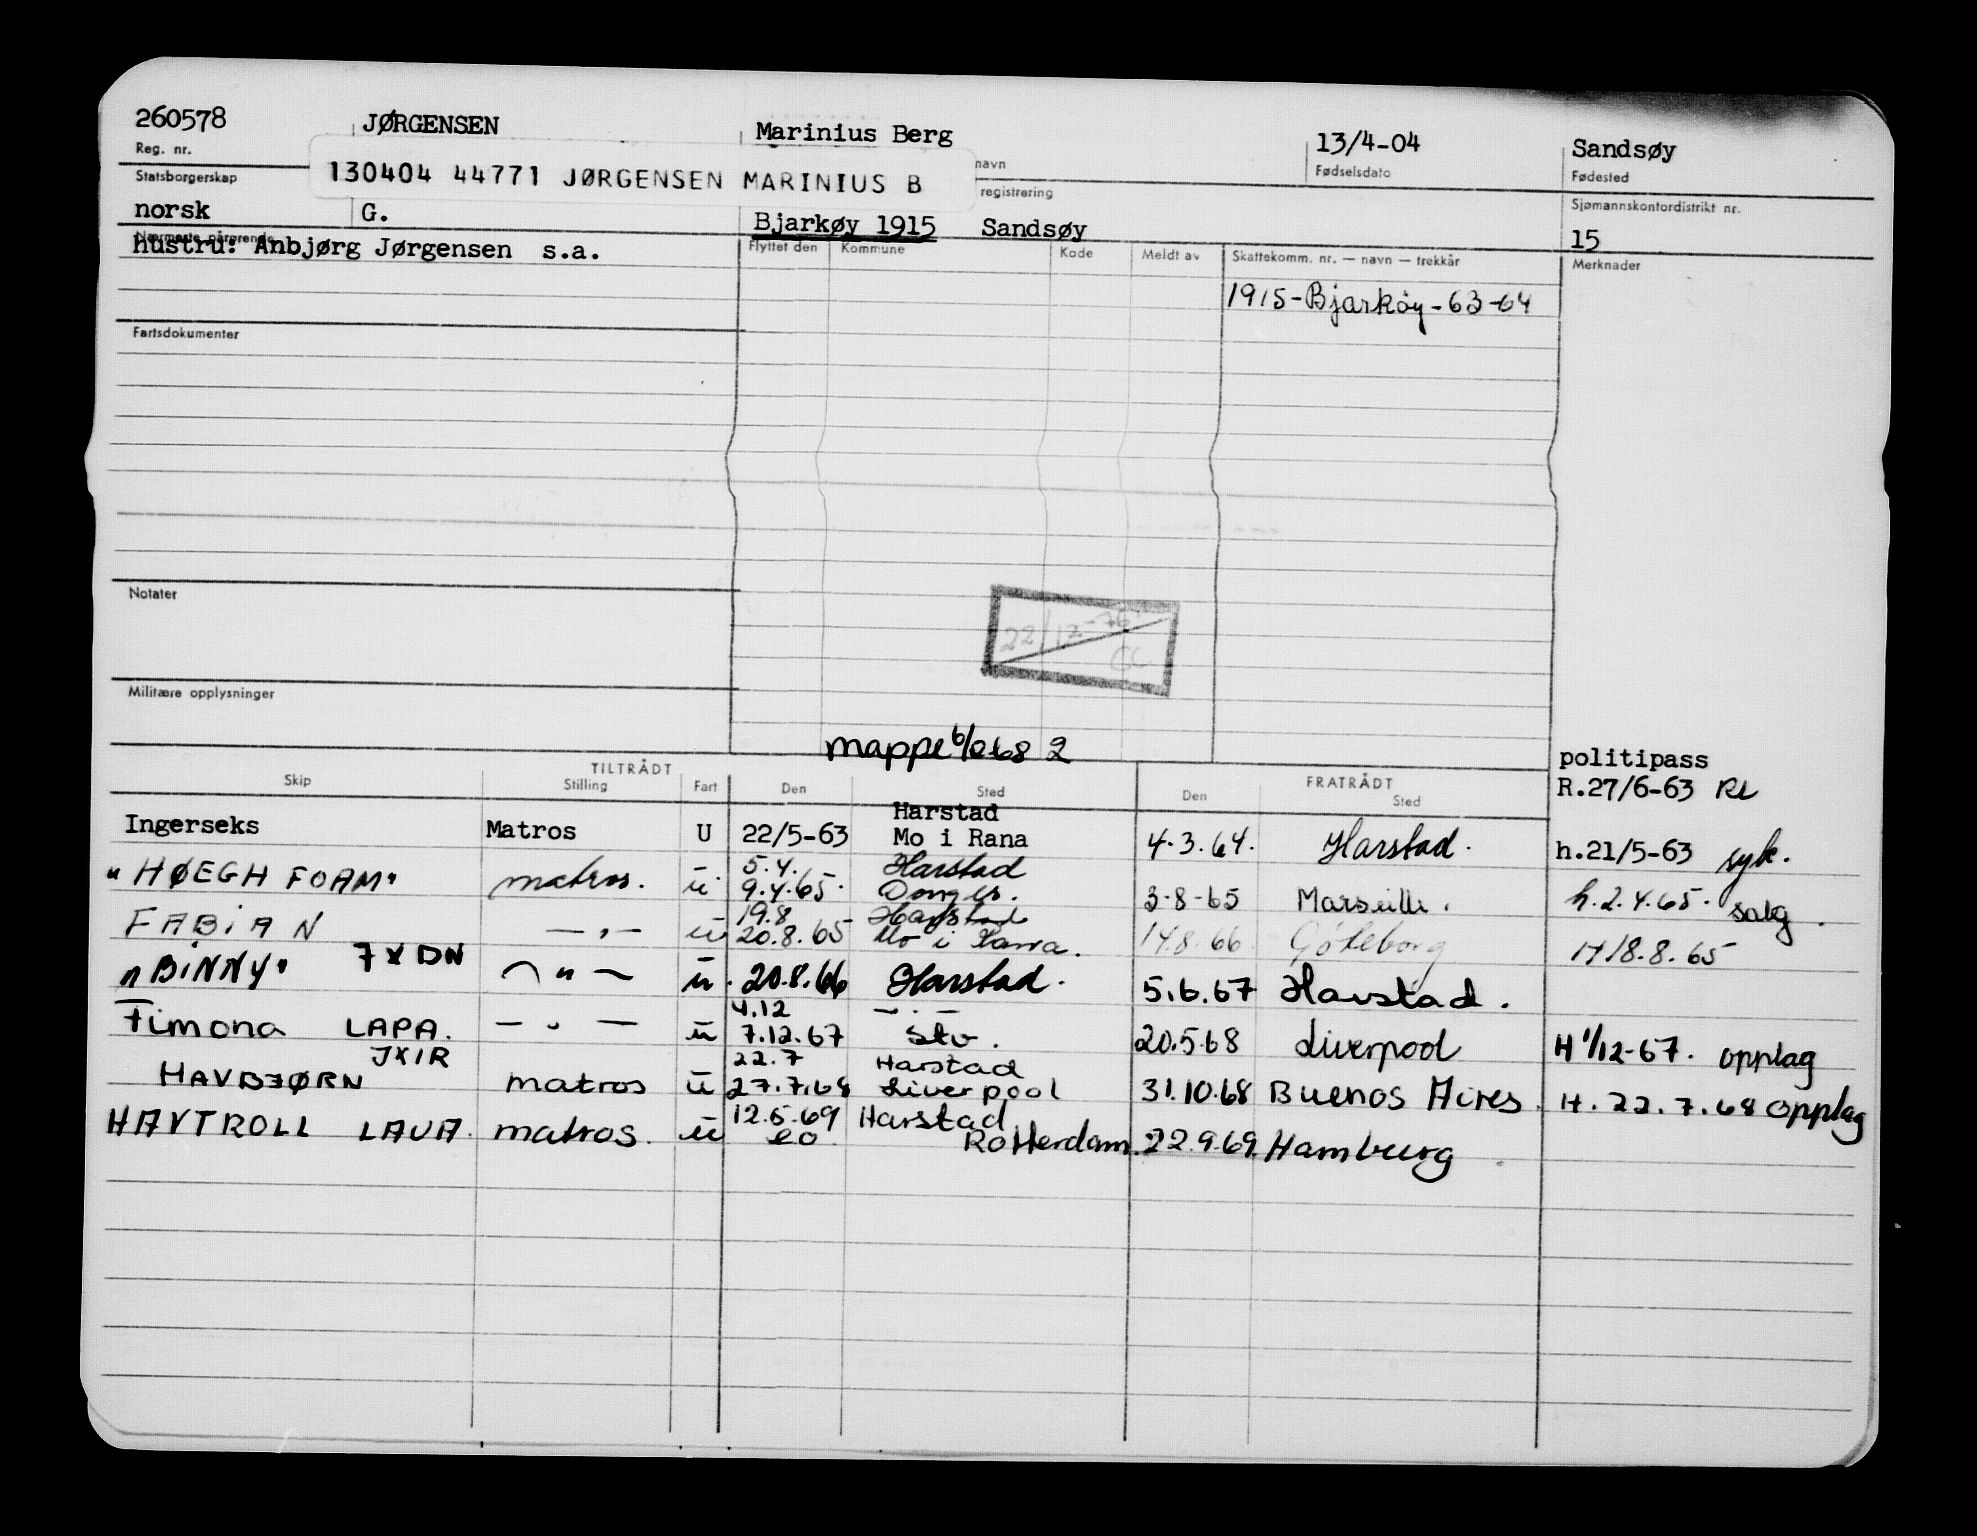 260578 JØRGENSEN Marinius Berg 13/4-04 Sandsøy
Reg. nr. navn Fødselsdato Fødested
130404 44771 JØRGENSEN MARINIUS B
Statsborgerskap registrering Sjømannskontordistrikt nr.
norsk G. Bjarkøy 1915 Sandsøy 15
Nærmeste pårørende Flyttet den Kommune Kode Meldt av Skattekomm. nr. — navn — trekkår Merknader
hustru: Anbjørg Jørgensen s.a.
1915-Bjarkøy-63-64
Fartsdokumenter
Notater
22/12-76
Militære opplysninger
mappe 2
politipass
TILTRÅDT FRATRÅDT
Skip Stilling Fart Den Sted Den Sted
R.27/6-63 RL
Harstad
Ingerseks Matros U 22/5-63 Mo i Rana 4.3.64. Harstad. h.21/5-63 syk.
5.4. Harstad
"HØEGH FOAM" matros. u. 9.4.65. Donges. 3-8-65 Marseille. h.2.4.65. salg.
19.8 Harstad
FABIAN — " — u 20.8.65 Mo i Rana. 14.8.66 Göteborg 18.8.65
"BINNY" JXDN — " — u. 20.8.66 Harstad. 5.6.67 Harstad.
4.12 — " —
Fimona LAPA. — " — u 7.12.67 Sto. 20.5.68 Liverpool H 1/12-67. opplag
JXIR 22.7 Harstad
HAVBJØRN matros u 27.7.68 Liverpool 31.10.68 Buenos Aires. H. 22.7.68 opplag
12.5.69 Harstad
HAVTROLL LAUA. matros. u 20 Rotterdam. 22.9.69. Hamburg